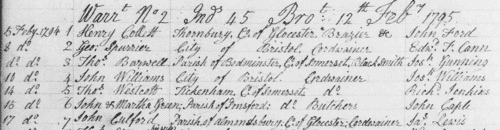 Warrt No 2 Ind 45 Brot 12th Feby 1795
5 Feby 1794 1 Henry Collett Thornbury, C. of Glocester Brazier &c John Ford
8 do 2 Geo. Spurrier City of Bristol Cordwainer Edw. T. Cann
do do 3 Thos. Barwell Parish of Bedminster, C. of Somerset, Black Smith Jos. Gunning
10 do 4 John Williams City of Bristol Cordwainer Jos. Williams
14 do 5 Thos. Westcott Tickenham, C. of Somerset do Richd. Jenkins
16 do 6 John & Martha Green, Parish of do Butchers John Caple
17 do 7 John Parish of Almondsbury C. of Glocester, Cordwainer Jas. Lewis